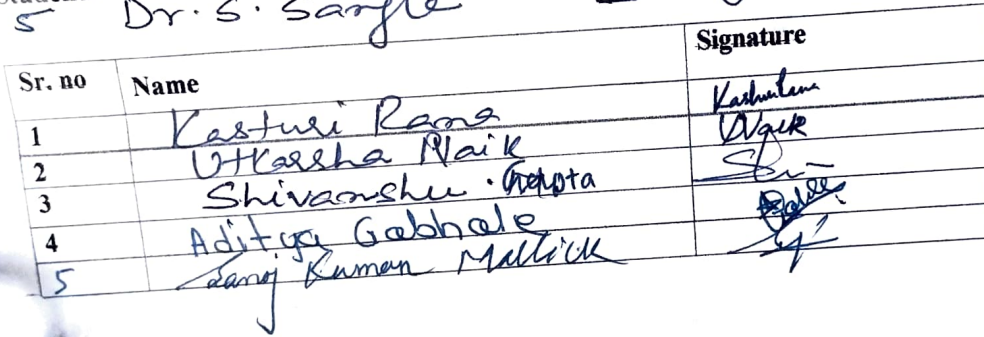 5 Dr. S. Sangle
Sr. no Name Signature
1 Kasturi Rana
2 Utkarsha Naik WNaik
3 Shivanshu . Gupta
4 Aditya Gabhale
5 Kumar Mallick